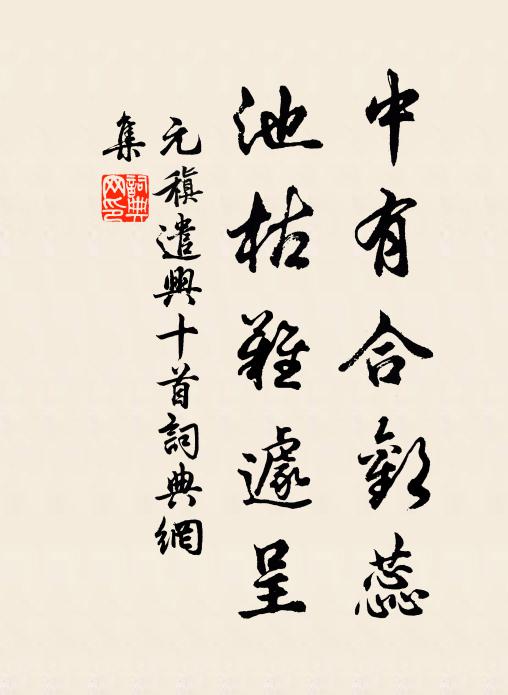 中有合歡蕊
池枯難遽呈
元稹遣興十首詞典網
集
詞典
网印